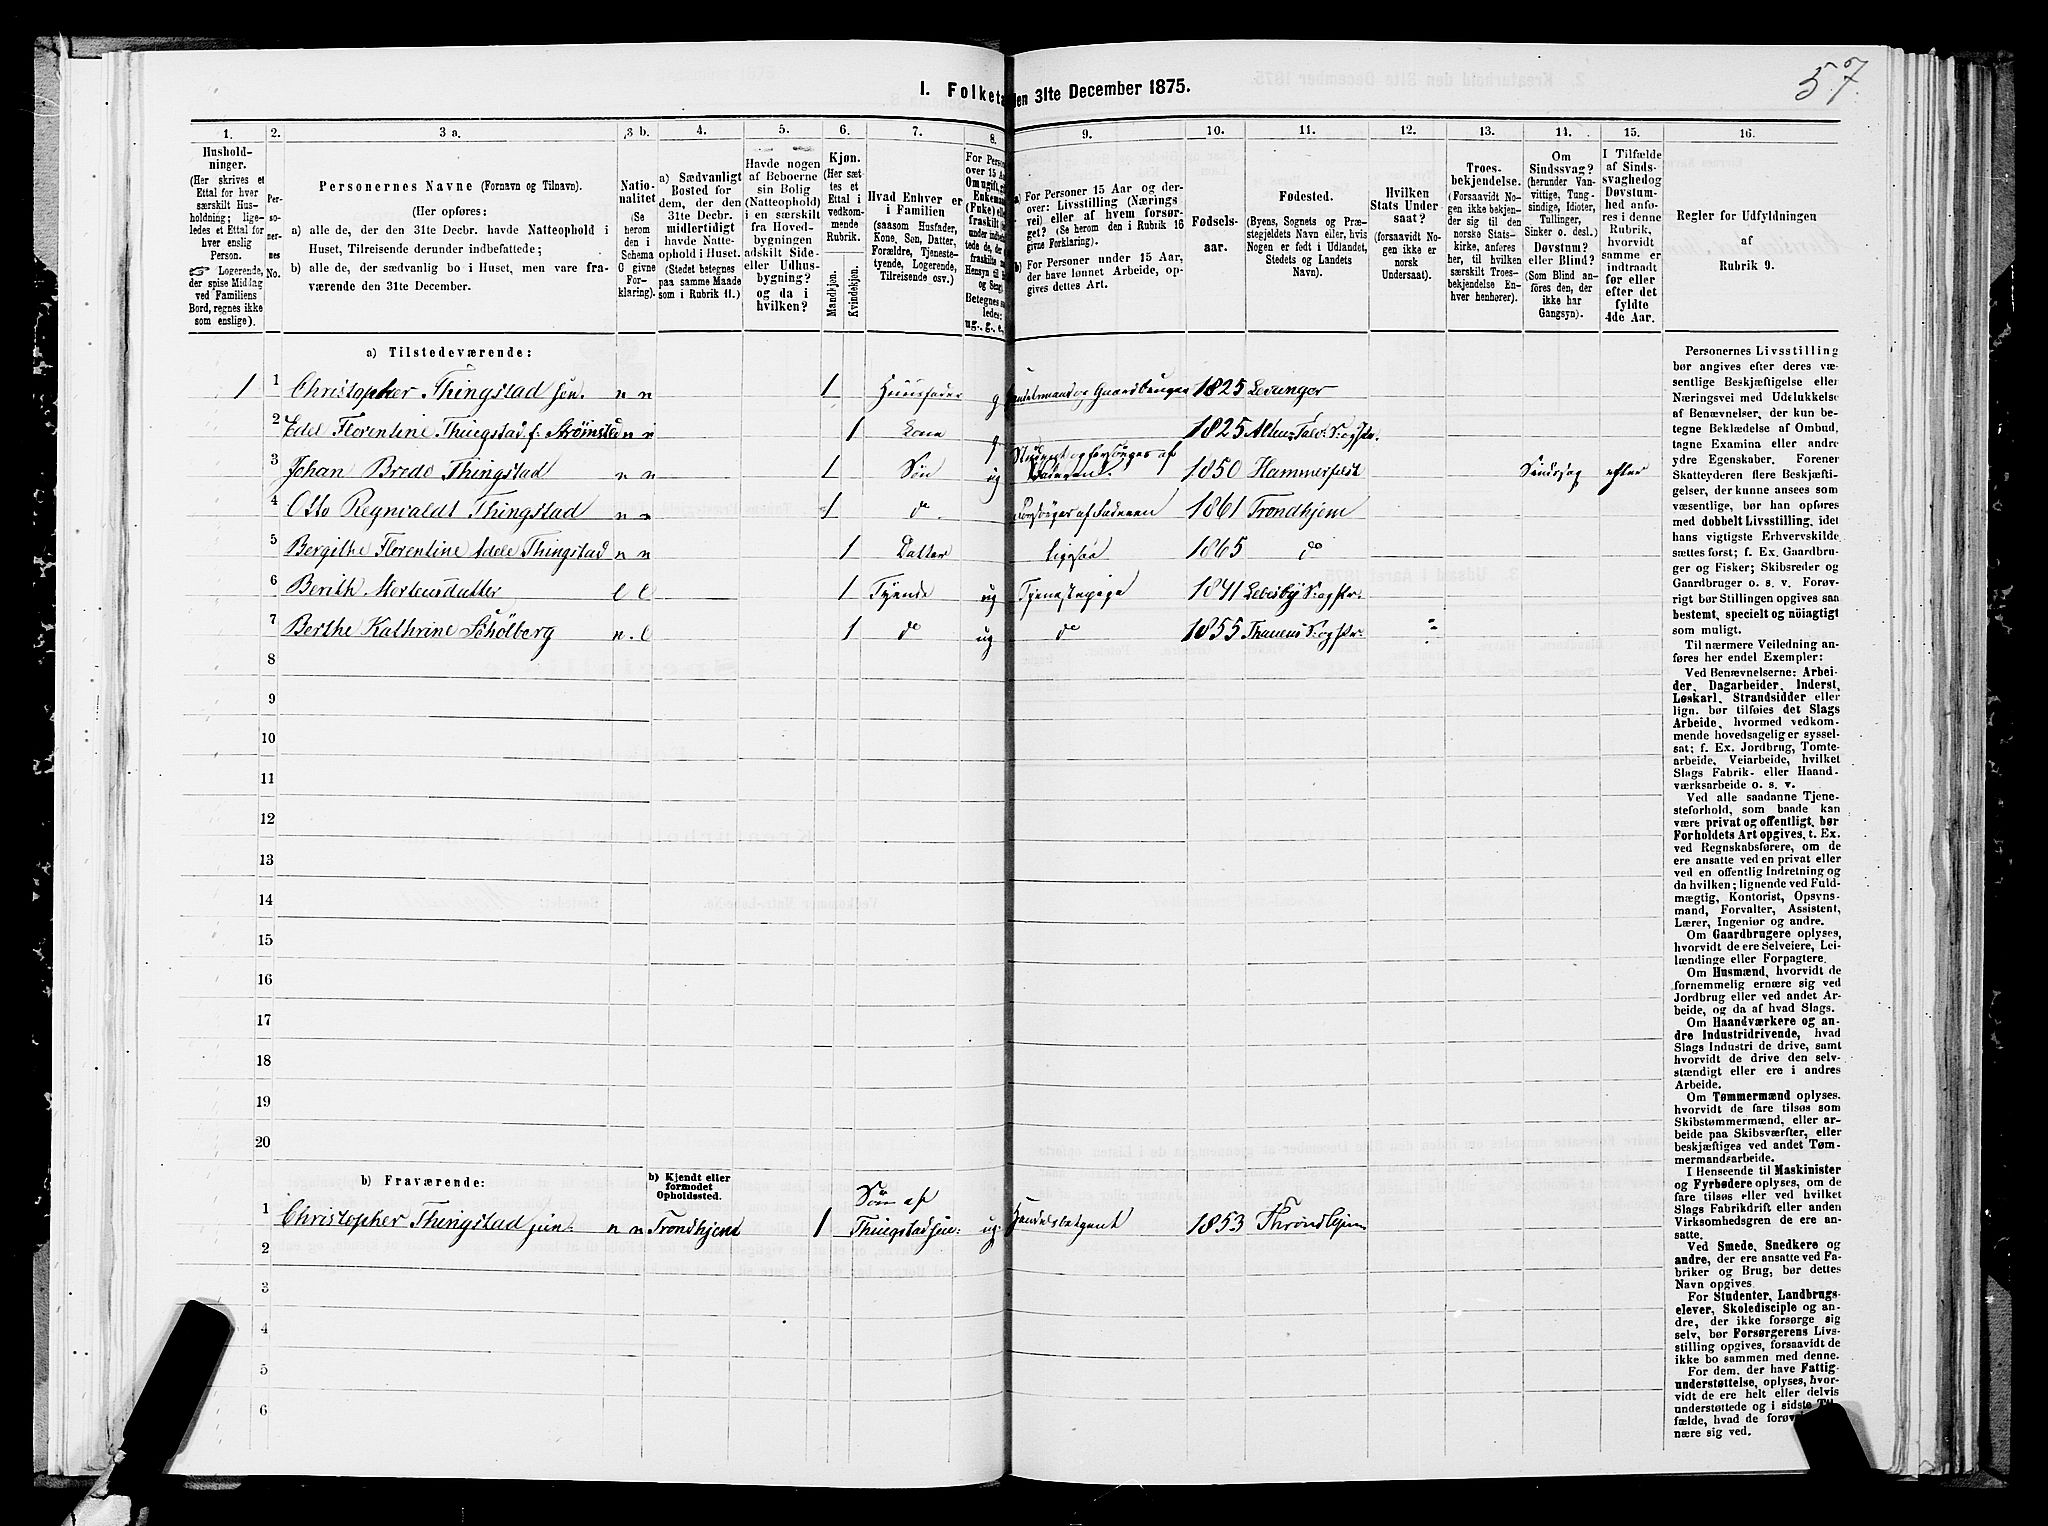 57
I. Folketæ
den 31te December 1875.
1. 2. 3 a. 3 b. 4. 5. 6. 7. 8. 9. 10. 11. 12. 13. 14. 15. 16.
Hushold-
ninger.
(Her skrives et
Ettal for hver
særskilt Hus-
holdning; lige-
ledes et Ettal for
hver enslig
Person.
☞ Logerende,
der spise Middag
ved Familiens
Bord, regnes ikke
som enslige).
Per-
so-
ner-
nes
No.
Personernes Navne (Fornavn og Tilnavn).
(Her opføres:
a) alle de, der den 31te Decbr. havde Natteophold i
Huset, Tilreisende derunder indbefattede;
b) alle de, der sædvanlig bo i Huset, men vare fra-
værende den 31te December.
Natio-
nalitet
(Se
herom
den i
Schema
G givne
For-
klaring).
a) Sædvanligt
Bosted for
dem, der den
31te Decbr.
midlertidigt
havde Natte-
ophold i Huset.
(Stedet betegnes
paa samme Maade
som i Rubrik 11.)
Havde nogen
af Beboerne
sin Bolig
(Natteophold)
i en særskilt
fra Hoved-
bygningen
adskilt Side-
eller Udhus-
bygning?
og da i
hvilken?
Kjøn.
(Her sæt-
tes et
Ettal i
vedkom-
mende
Rubrik.
Mandkjøn.
Kvindekjøn.
Hvad Enhver er
i Familien
(saasom Husfader,
Kone, Søn, Datter,
Forældre, Tjeneste-
tyende, Logerende,
Tilreisende osv.)
For Person
over 15 Aar
Om ugift, gi
Enkemand
(Enke) eller
fraskilt
Betegnes saa-
ledes:
ug., g., e.,
a) For Personer 15 Aar og der-
over: Livsstilling (Nærings
vei) eller af hvem forsør-
get? (Se herom i Rubrik 16
givne Forklaring).
b) For Personer under 15 Aar,
der have lønnet Arbeide, op-
gives dettes Art.
Fødsels-
aar.
Fødested.
(Byens, Sognets og Præ-
stegjeldets Navn eller, hvis
Nogen er født i Udlandet,
Stedets og Landets
Navn).
Hvilken
Stats Under
saat?
(forsaavidt No-
gen ikke er
norsk
Undersaat).
Troes-
bekjendelse.
(Forsaavidt No-
gen ikke bekjen-
der sig til den
norske Stats-
kirke, anføres
her, til hvilken
særskilt Troes-
bekjendelse En-
hver henhører).
Om
Sindssvag?
(herunder Van-
vittige, Tung-
sindige, Idioter,
Tullinger,
Sinker o. desl.)
Døvstum?
eller Blind?
(Som Blind an-
føres den, der
ikke har
Gangsyn).
I Tilfælde
af Sinds-
svaghed og
Døvstum-
hed anfø-
res i denne
Rubrik,
hvorvidt
samme er
indtraadt
før eller
efter det
fyldte
4de Aar.
Regler for Udfyldningen
af
Rubrik 9.
a) Tilstedeværende:
1 1 Christopher Thingstad sen. n n 1 Huusfader g Handelsmand og Gaardbruger 1825 Levanger
2 Edel Florentine Thingstad f: Strømsted n n 1 Kone g 1825 Alten-Talv: S: og Pr.
3 Johan Brede Thingstad n n 1 Søn ug Student og forsørges af Faderen. 1850 Hammerfest Sindssvag efter
4 Otto Regnvaldt Thingstad n n 1 do. Forsørges af Faderen 1861 Trondhjem
5 Bergithe Florentine Edele Thingstad n n 1 Datter ligesaa 1865 do
6 Berith Mortensdatter l l 1 Tyende ug Tjenestepige 1841 Lebesby S: og Pr.
7 Berthe Kathrine Schølberg n. l 1 do ug do 1855 Thanens S: og Pr.
8
9
10
11
12
13
14
15
16
17
18
19
20
b) Fraværende:
b) Kjendt eller
formodet
Opholdssted.
1 Christopher Thingstad jun. n n Trondhjem 1 Søn af Thingstad sen: ug: Handelsbetjent 1853 Throndhjem
2
3
4
5
6
Personernes Livsstilling
bør angives efter deres væ-
sentlige Beskjæftigelse eller
Næringsvei med Udelukkelse
af Benævnelser, der kun be-
tegne Beklædelse af Ombud,
tagne Examina eller andre
ydre Egenskaber. Forener
Skatteyderen flere Beskjæfti-
gelser, der kunne ansees som
væsentlige, bør han opføres
med dobbelt Livsstilling, idet
hans vigtigste Erhvervskilde
sættes først; f. Ex. Gaardbru-
ger og Fisker; Skibsreder og
Gaardbruger o. s. v. Forøv-
rigt bør Stillingen opgives saa
bestemt, specielt og nöiagtigt
som muligt.
Til nærmere Veiledning an-
føres her endel Exempler:
Ved Benævnelserne: Arbei-
der, Dagarbeider, Inderst,
Løskarl, Strandsidder eller
lign. bør tilføies det Slags
Arbeide, hvormed vedkom-
mende hovedsagelig er syssel-
sat; f. Ex. Jordbrug, Tomte-
arbeide, Veiarbeide, hvilket
Slags Fabrik- eller Haand-
værksarbeide o. s. v.
Ved alle saadanne Tjene-
steforhold, som baade kan
være privat og offentligt, bør
Forholdets Art opgives, t. Ex.
ved Regnskabsførere, om de
ere ansatte ved en privat eller
ved en offentlig Indretning og
da hvilken; lignende ved Fuld-
mægtig, Kontorist, Opsyns-
mand, Forvalter, Assistent,
Lærer, Ingeniør og andre.
Om Gaardbrugere oplyses,
hvorvidt de ere Selveiere, Lei-
lændinge eller Forpagtere.
Om Husmænd, hvorvidt de
fornemmelig ernære sig ved
Jordbrug eller ved andet Ar-
beide, og da af hvad Slags.
Om Haandværkere og an-
dre Industridrivende, hvad
Slags Industri de drive, samt
hvorvidt de drive den selv-
stændigt eller ere i andres
Arbeide.
Om Tømmermænd oplyses,
hvorvidt de fare tilsøs som
Skibstømmermænd, eller ar-
beide paa Skibsværfter, eller
beskjæftiges ved andet Tøm-
mermandsarbeide.
I Henseende til Maskinister
og Fyrbødere oplyses, om de
fare tilsøs eller ved hvilket
Slags Fabrikdrift eller anden
Virksomhedsgren de ere an-
satte.
Ved Smede, Snedkere og
andre, der ere ansatte ved Fa-
briker og Brug, bør dettes
Navn opgives.
For Studenter, Landbrugs-
elever, Skoledisciple og an-
dre, der ikke forsørge sig
selv, bør Forsørgerens Livs-
stilling opgives, forsaavidt de
ikke bo sammen med denne.
For dem, der have Fattig-
understøttelse, oplyses, hvor-
vidt de ere helt eller delvis
understøttede og i sidste Til-
fælde, hvad de
nære sig ved.